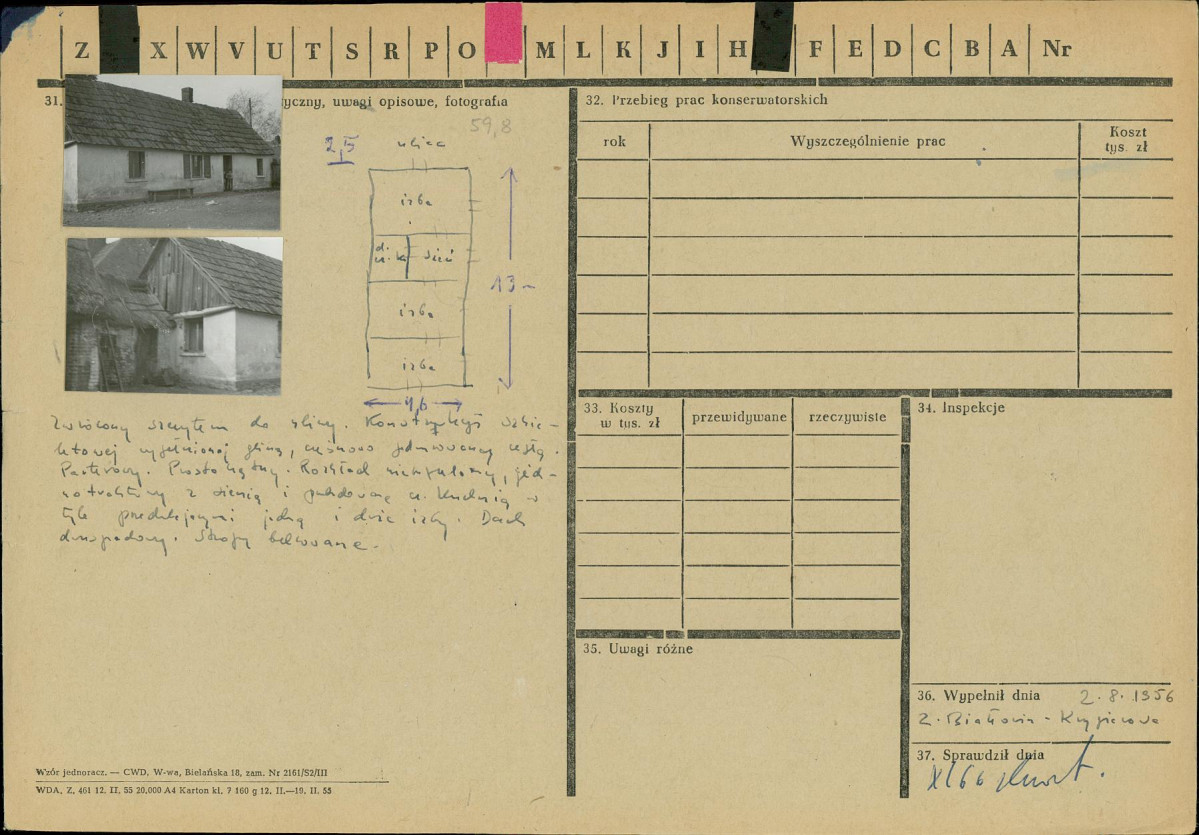 Z X W V U T S R P O M L K J I H F E D C B A Nr
31. tyczny, uwagi opisowe, fotografia
59,8
2,5
ulica
izba
sień
izba
izba
13 -
4,6
Zwrócony szczytem do ulicy. Konstrukcji szkie-
letowej wypełnionej gliną, częściowo podmurowany cegłą.
Parterowy. Prostokątny. Rozkład nieregularny, jed-
notraktowy z sienią i kuchnią w
tyle przedzielającymi jedną i dwie izby. Dach
dwuspadowy. Stropy belkowane.
Wzór jednoracz. — CWD, W-wa, Bielańska 18, zam. Nr 2161/S2/III
WDA, Z. 461 12. II. 55 20.000 A4 Karton kl. 7 160 g 12. II.—19. II. 55
32. Przebieg prac konserwatorskich
rok Wyszczególnienie prac Koszt
tys. zł
33. Koszty
w tys. zł
przewidywane rzeczywiste
34. Inspekcje
35. Uwagi różne
36. Wypełnił dnia 2.8.1956
Z. Białowin - Krygierowa
37. Sprawdził dnia
XI 66